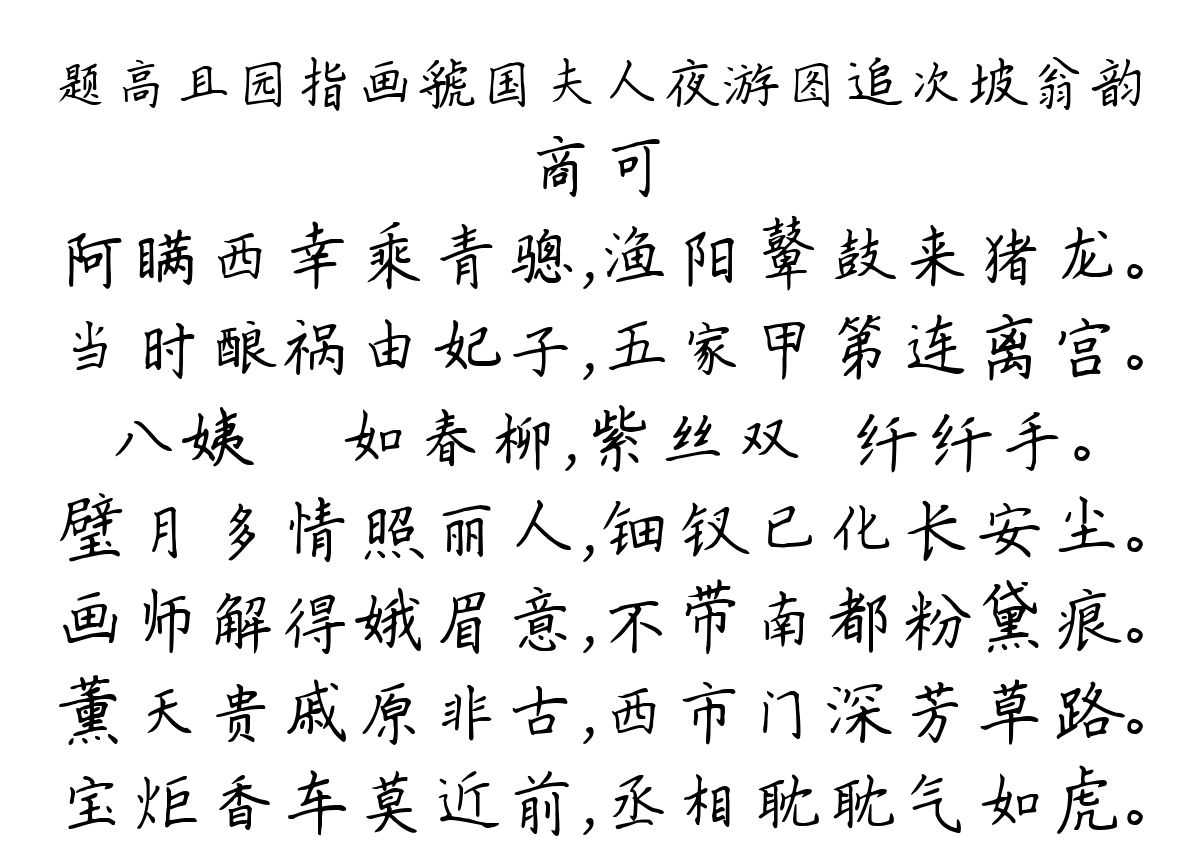 题高且园指画虢国夫人夜游图追次坡翁韵
商可
阿瞒西幸乘青骢,渔阳鼙鼓来猪龙。
当时酿祸由妃子,五家甲第连离宫。
八姨 如春柳,紫丝双 纤纤手。
璧月多情照丽人,钿钗已化长安尘。
画师解得娥眉意,不带南都粉黛痕。
薰天贵戚原非古,西市门深芳草路。
宝炬香车莫近前,丞相耽耽气如虎。